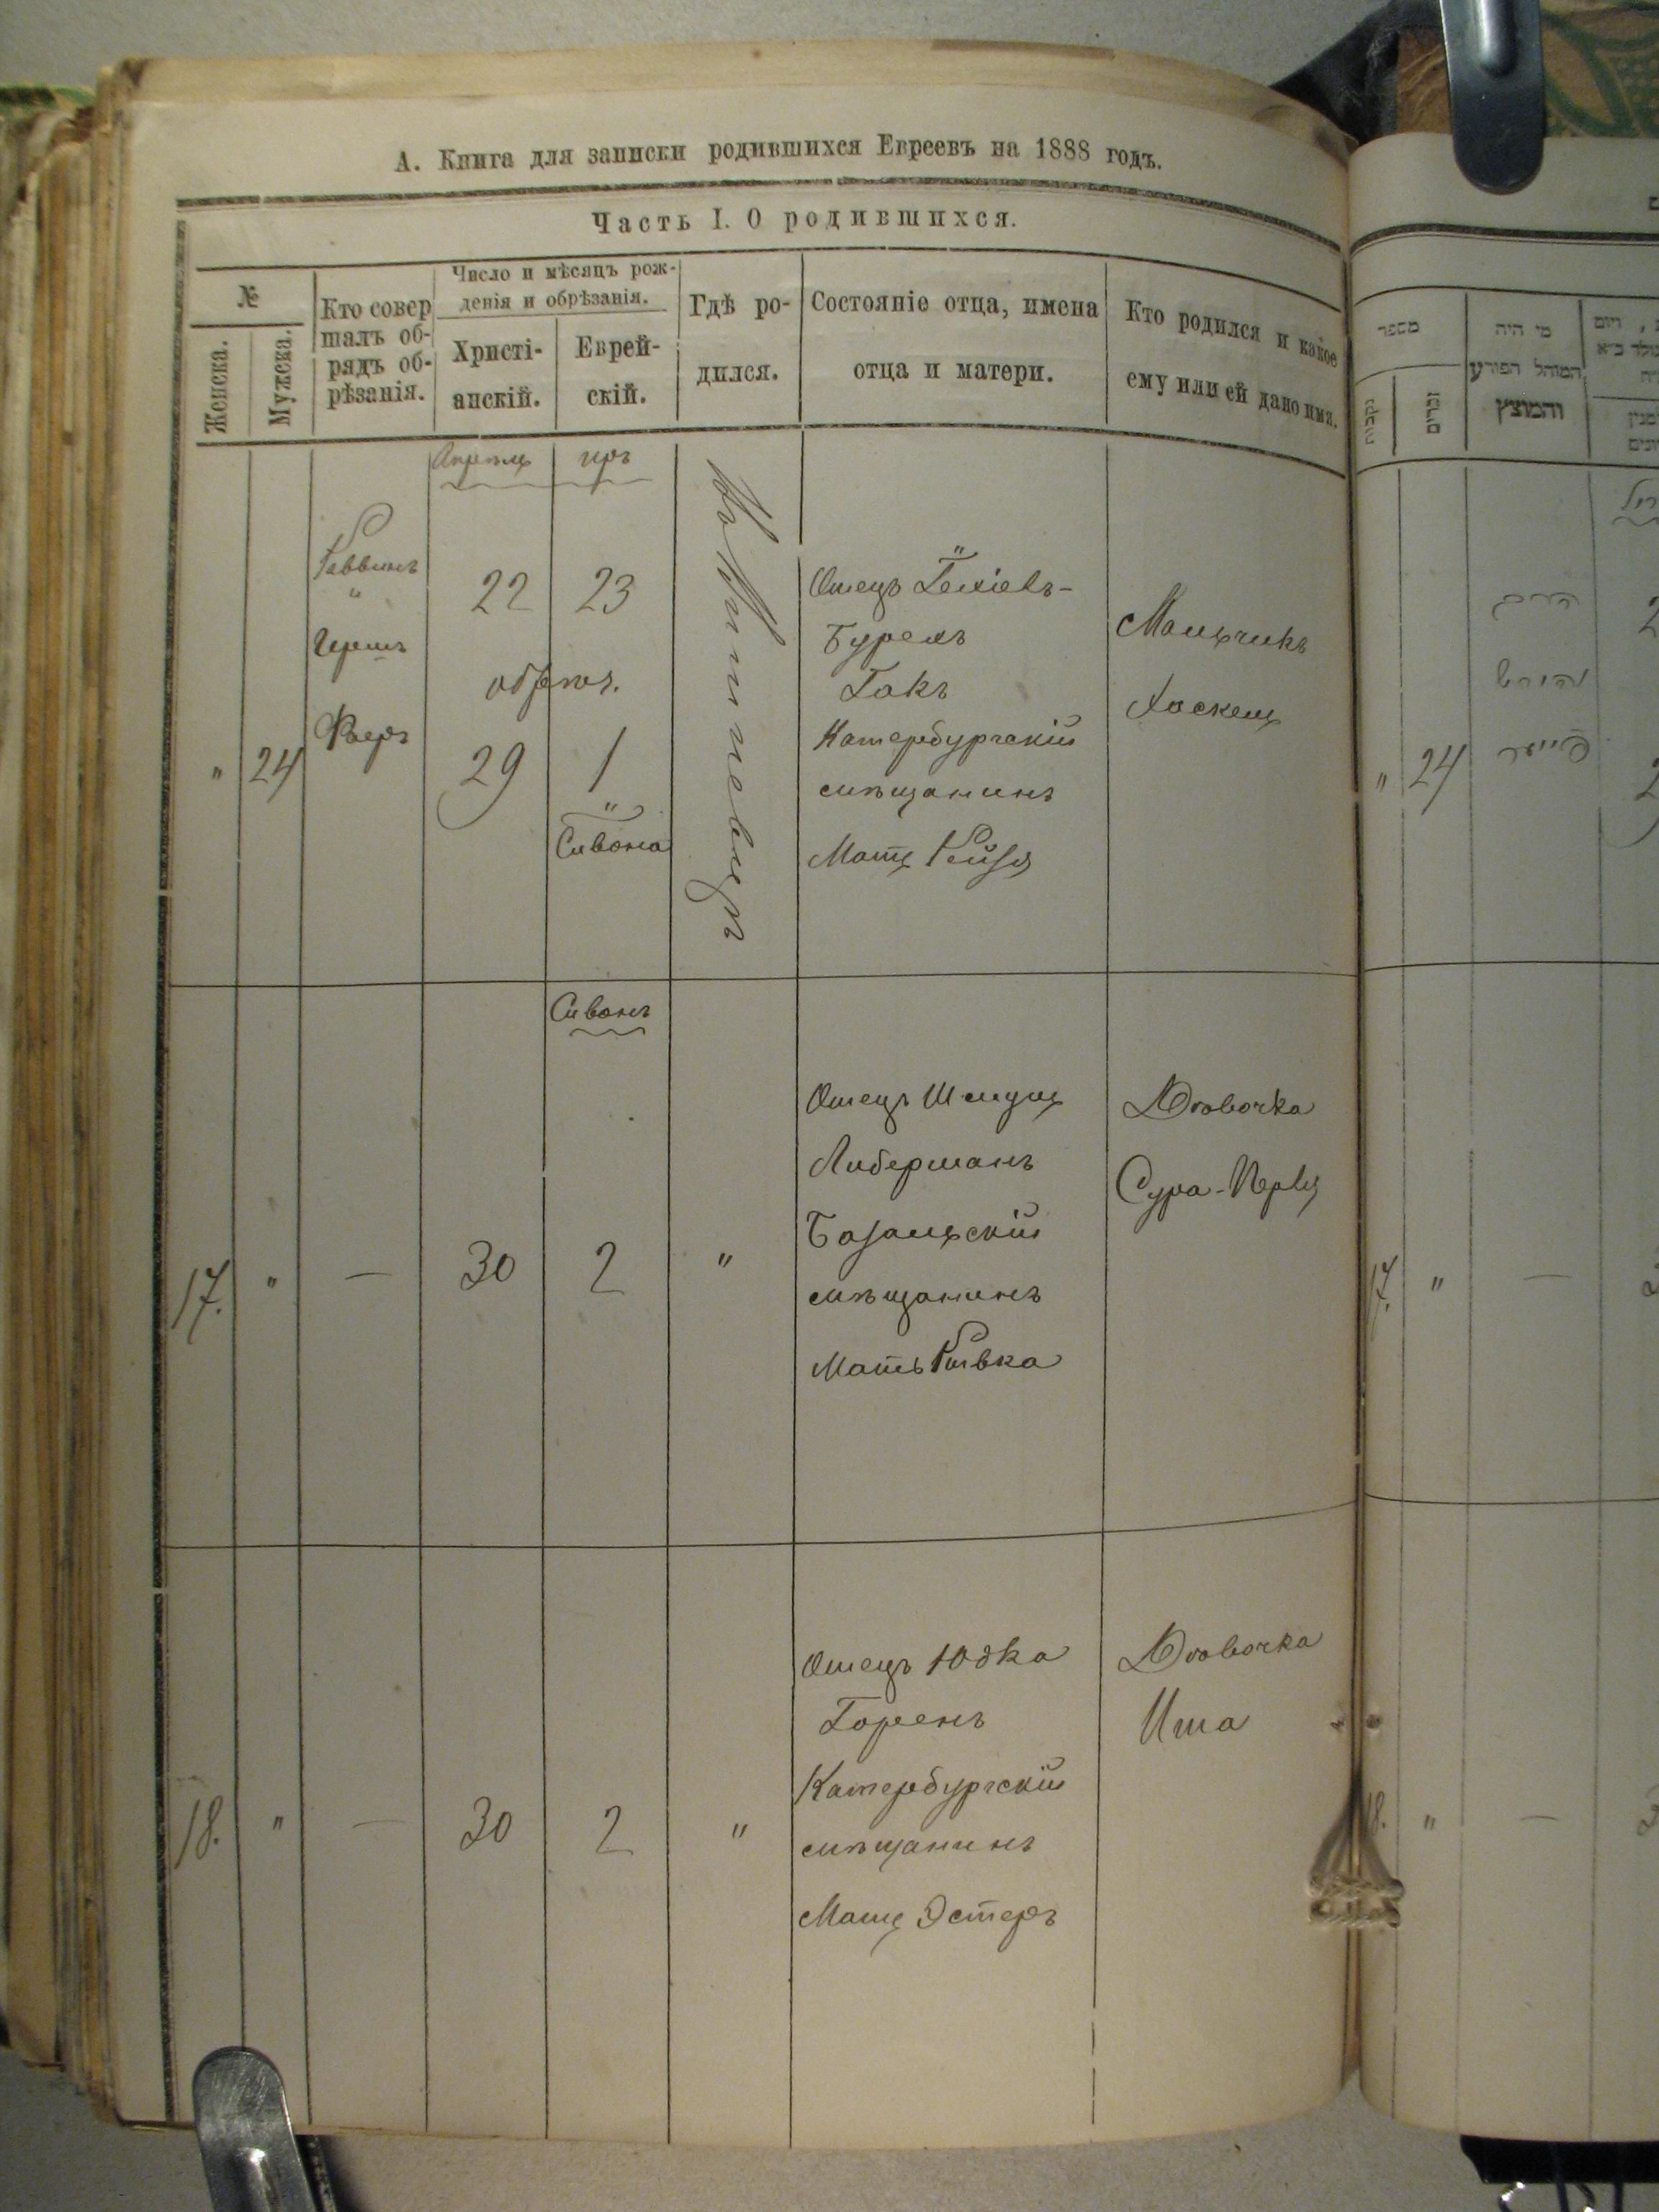 А. Книга для записки родившихся Евреевъ на 1888 годъ.
Часть I. О родившихся.
№
Женска.
Мужска.
Кто совер
шалъ об-
рядъ об-
рѣзанія.
Число и мѣсяцъ рож-
денія и обрѣзанія.
Христі-
анскій.
Еврей-
скій.
Гдѣ ро-
дился.
Состояніе отца, имена
отца и матери.
Кто родился и какое
ему или ей дано имя.
Апрель
иръ
"
24
Раввинъ
"
Гершъ
Фееръ
22
23
обрѣз.
29
1
"
Сивона
Отецъ
Бурехъ
Гакъ
Катербургскій
мѣщанинъ
Мать Рейзя
Мальчикъ
Хаскель
Сивонъ
17.
"
—
30
2
"
Отецъ Шмуль
Либерманъ
Базальскій
мѣщанинъ
Мать Ривка
Дѣвочка
Сура-
18.
"
—
30
2
"
Отецъ Юдка
Горенъ
Катербургскій
мѣщанинъ
Мать Эстеръ
Дѣвочка
מספר
נקבות
זכרים
מי היה
המוהל הפורע
והמוצץ
"
24
הרב
והירש
פייער
17.
"
—
18.
"
—